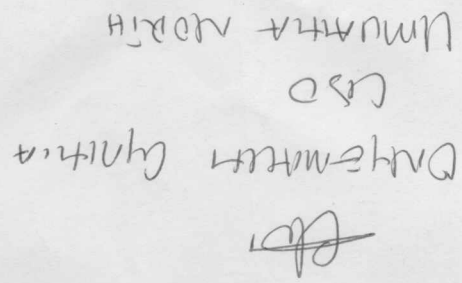 ONYEMAECHI CYNTHIA
CSO
UMUAHIA NORTH